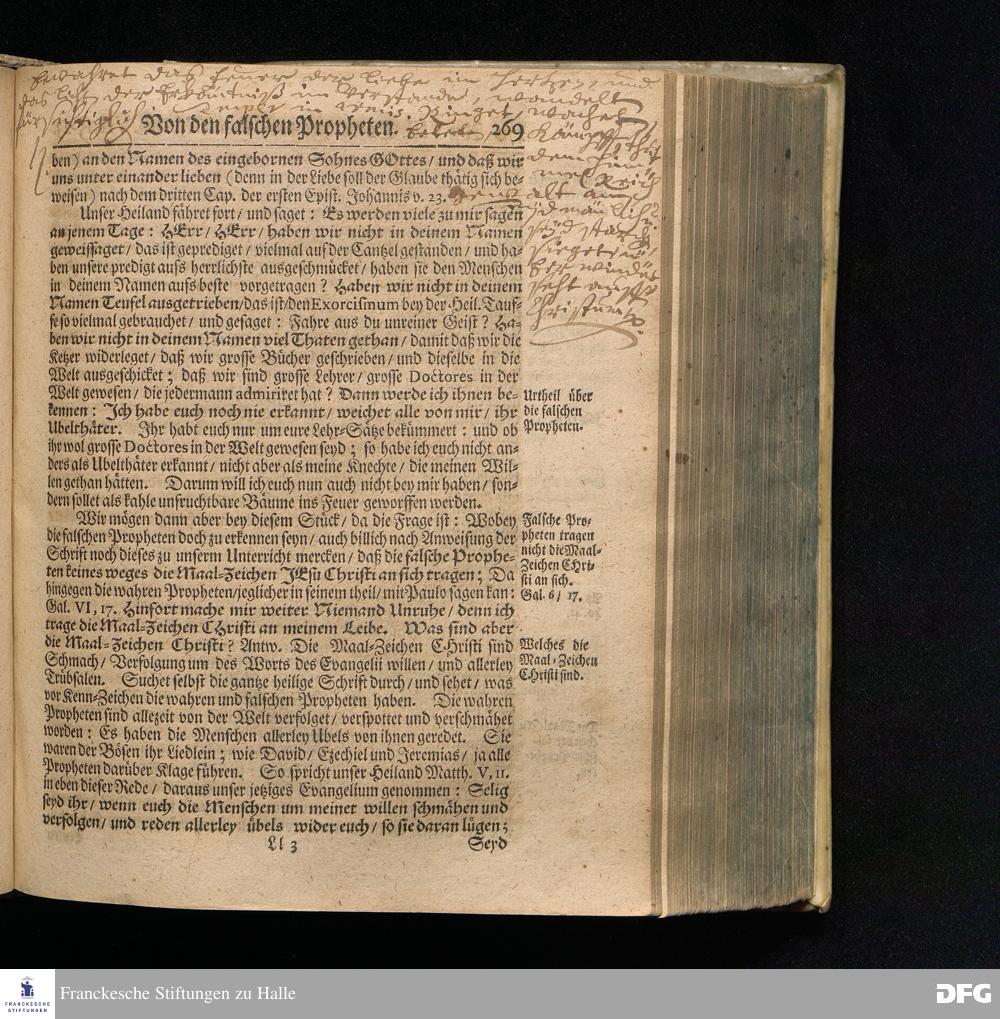 bewahret das feuer der liebe im Hertzen, und
das der Erkäntniß im Verstande, wandelt
fürsichtiglich
Von den falschen Propheten. 269
ben) an den Namen des eingebornen Sohnes GOttes / und daß wir
uns unter einander lieben (denn in der Liebe soll der Glaube thätig sich be-
weisen) nach dem dritten Cap. der ersten Epist. Johannis v. 23.
Unser Heiland fähret fort / und saget: Es werden viele zu mir sagen
an jenem Tage: HErr / HErr / haben wir nicht in deinem Namen
geweissaget / das ist geprediget / vielmal auf der Cantzel gestanden / und ha-
ben unsere predigt aufs herrlichste ausgeschmücket / haben sie den Menschen
in deinem Namen aufs beste vorgetragen? Haben wir nicht in deinem
Namen Teufel ausgetrieben / das ist / den Exorcismum bey der Heil. Tauf-
fe so vielmal gebrauchet / und gesaget: Fahre aus du unreiner Geist? Ha-
ben wir nicht in deinem Namen viel Thaten gethan / damit daß wir die
Ketzer widerleget / daß wir grosse Bücher geschrieben / und dieselbe in die
Welt ausgeschicket; daß wir sind grosse Lehrer / grosse Doctores in der
Welt gewesen / die jedermann admiriret hat? Dann werde ich ihnen be-
kennen: Ich habe euch noch nie erkannt / weichet alle von mir / ihr
Ubelthäter. Ihr habt euch nur um eure Lehr-Sätze bekümmert: und ob
ihr wol grosse Doctores in der Welt gewesen seyd; so habe ich euch nicht an-
ders als Ubelthäter erkannt / nicht aber als meine Knechte / die meinen Wil-
len gethan hätten. Darum will ich euch nun auch nicht bey mir haben / son-
dern sollet als kahle unfruchtbare Bäume ins Feuer geworffen werden.
Wir mögen dann aber bey diesem Stück / da die Frage ist: Wobey
die falschen Propheten doch zu erkennen seyn / auch billich nach Anweisung der
Schrift noch dieses zu unserm Unterricht mercken / daß die falsche Prophe-
ten keines weges die Maal-Zeichen JEsu Christi an sich tragen; Da
hingegen die wahren Propheten / jeglicher in seinem theil / mit Paulo sagen kan:
Gal. VI, 17. Hinfort mache mir weiter Niemand Unruhe / denn ich
trage die Maal-Zeichen CHristi an meinem Leibe. Was sind aber
die Maal-Zeichen Christi? Antw. Die Maal-Zeichen CHristi sind
Schmach / Verfolgung um des Worts des Evangelii willen / und allerley
Trübsalen. Suchet selbst die gantze heilige Schrift durch / und sehet / was
vor Kenn-Zeichen die wahren und falschen Propheten haben. Die wahren
Propheten sind allezeit von der Welt verfolget / verspottet und verschmähet
worden: Es haben die Menschen allerley Ubels von ihnen geredet. Sie
waren der Bösen ihr Liedlein; wie David / Ezechiel und Jeremias / ja alle
Propheten darüber Klage führen. So spricht unser Heiland Matth. V, 11.
in eben dieser Rede / daraus unser jetziges Evangelium genommen: Selig
seyd ihr / wenn euch die Menschen um meinet willen schmähen und
verfolgen / und reden allerley übels wider euch / so sie daran lügen;
Ll 3 Seyd
wachet
Kämpfet
Reich
sieget
seht aufs
Christum
Urtheil über
die falschen
Propheten.
Falsche Pro-
pheten tragen
nicht die Maal-
Zeichen CHri-
sti an sich.
Gal. 6 / 17.
Welches die
Maal-Zeichen
CHristi sind.
FRANCKESCHE
STIFTUNGEN
Franckesche Stiftungen zu Halle
DFG